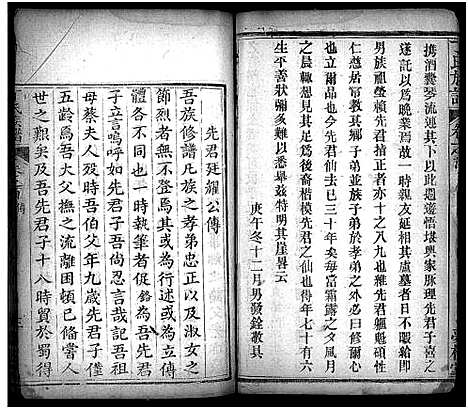 攜酒爨琴流連其間以此遊悟堪輿家脈理先君子喜之
遂託以爲晚業焉故一時親友葬祖其盧墓者日
男族祖瑩頼先君子贊者亦十之八九也雅度飄飄心
仁慈居常教其子弟並族子弟於孝弟之道必曰修爾心
培爾基又曰先君仙去已三十年矣每當花之夕風月
之晨輙想見其爲後裔楷模先君之仙也得年七十有六
生平善狀彌多難以悉舉茲特明其崖畧云
庚午冬十二月男發銓敬具
先君廷耀公傳
吾族修譜凡族之孝弟忠正以及淑女之
節烈者無不登焉其或爲行述或爲立傳
體各不同也一時執筆者促吾爲先君
子立言嗚呼如先君子吾尚忍言哉吾祖
母蔡夫人歿時吾伯父年九歲先君子僅
五齡焉吾大父撫之流離困頓已備嘗人
世之艱矣及吾先君子十八時商於蜀得